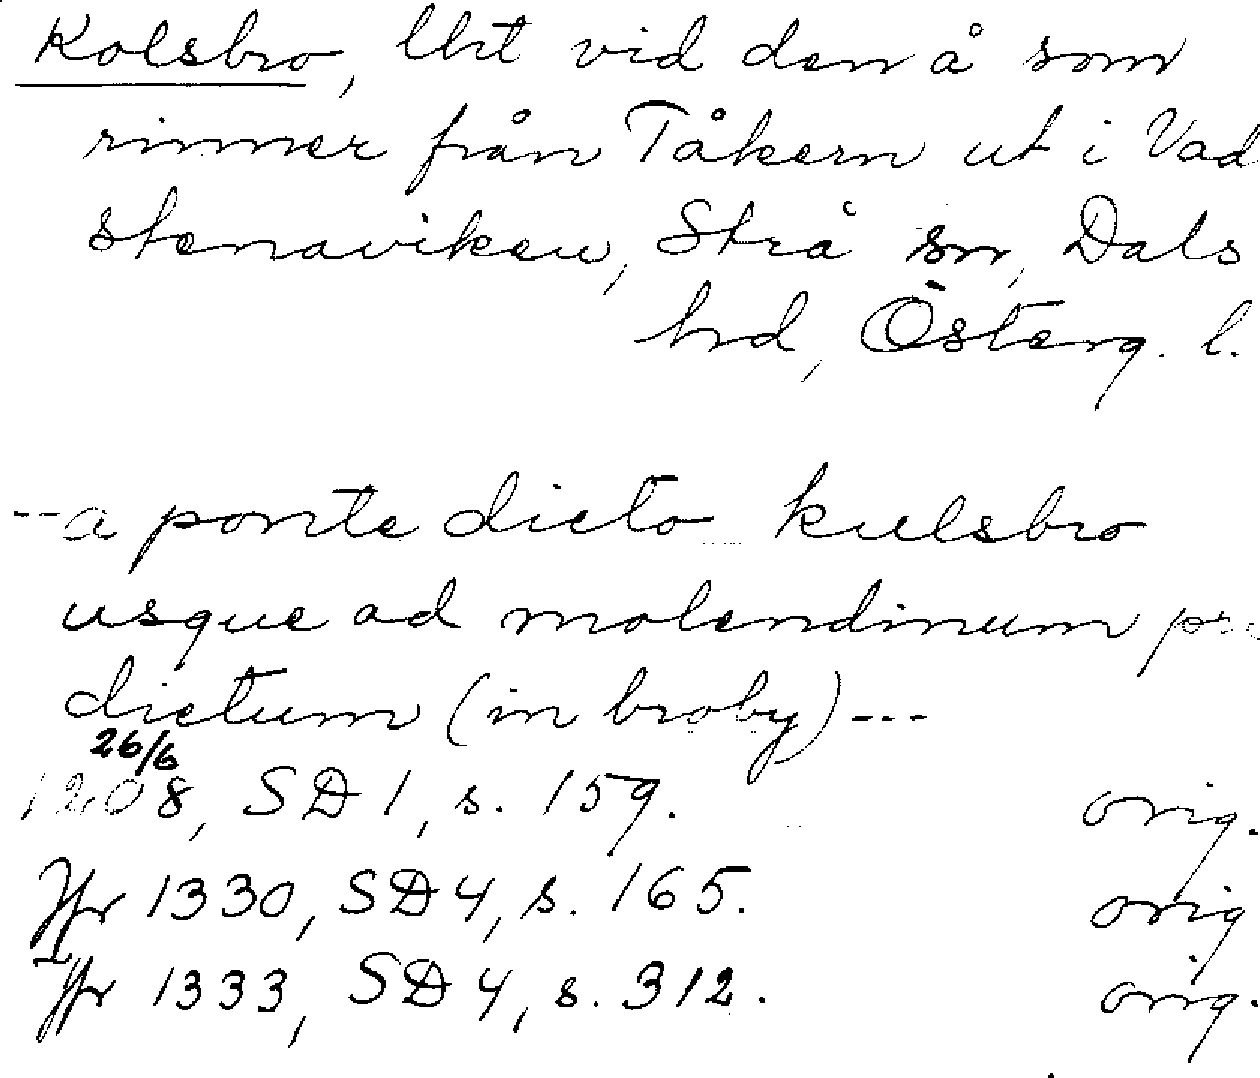 Kolsbro, lht vid den å som
rinner från Tåkern ut i Vad
stenaviken, Strå sn, Dals
hd, Österg. l.
--a ponte dicto kulsbro
usque ad molendinum pre
dictum (in broby)---
26/6
1208, SD 1, s. 159. orig.
Jfr 1330, SD 4, s. 165. orig
Jfr 1333, SD 4, s. 312. orig.